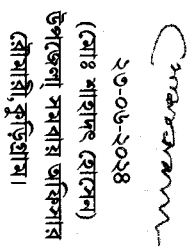 ২৩-০৬-২০২৪
(মোঃ শাহাদৎ হোসেন)
উপজেলা সমবায় অফিসার
রৌমারী, কুড়িগ্রাম।